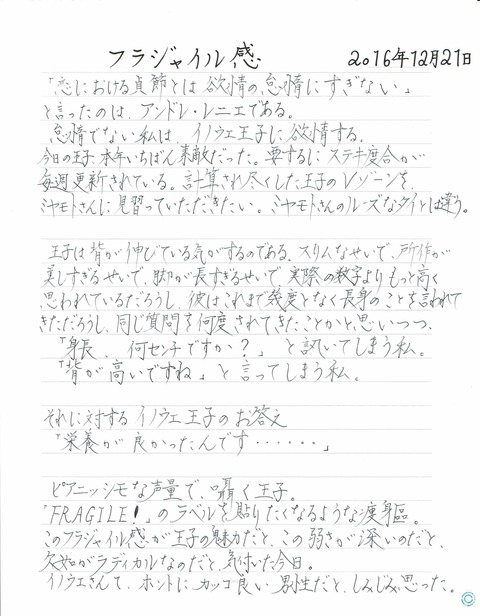 フラジャイル感 2016年12月21日
「恋における貞節とは欲情の怠惰にすぎない」
と言ったのは、アンドレ・レニエである。
怠惰でない私は、イノウエ王子に欲情する。
今日の王子、本年いちばん素敵だった。要するにステキ度合が
毎週更新されている。計算され尽くした王子のVゾーンを、
ミヤモトさんに見習っていただきたい。ミヤモトさんのルーズなタイとは違う。
王子は背が伸びている気がするのである。スリムなせいで、所作が
美しすぎるせいで、脚が長すぎるせいで、実際の数字よりもっと高く
思われているだろうし、彼はこれまで幾度となく長身のことを言われて
きただろうし、同じ質問を何度されてきたことかと思いつつ、
「身長、何センチですか?」と訊いてしまう私。
「背が高いですね」と言ってしまう私。
それに対するイノウエ王子のお答え
「栄養が良かったんです・・・・・・」
ピアニッシモな声量で、囁く王子。
「FRAGILE!」のラベルを貼りたくなるような痩身區。
このフラジャイル感が王子の魅力だと、この弱さが深いのだと、
欠如がラディカルなのだと、気付いた今日。
イノウエさんて、ホントにカッコ良い男性だと、しみじみ思った。